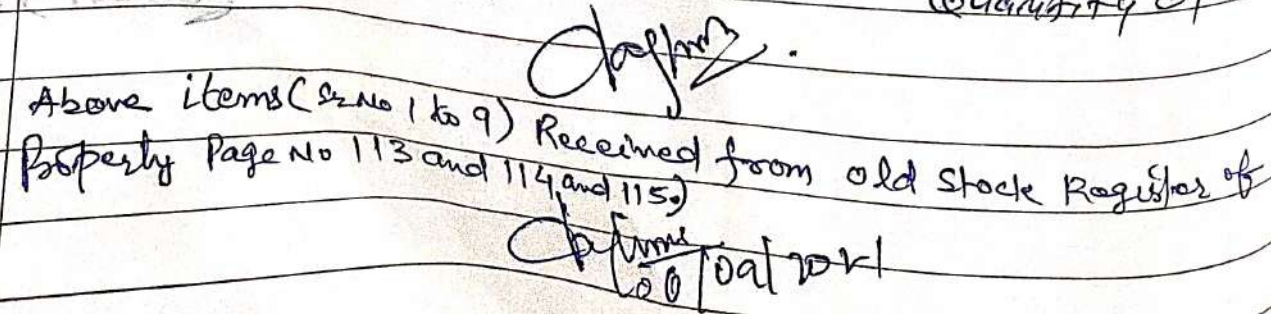 Quantity of
Above items (Sr No 1 to 9) Received from old Stock Register of
Property Page No 113 and 114 and 115.)
/09/2021